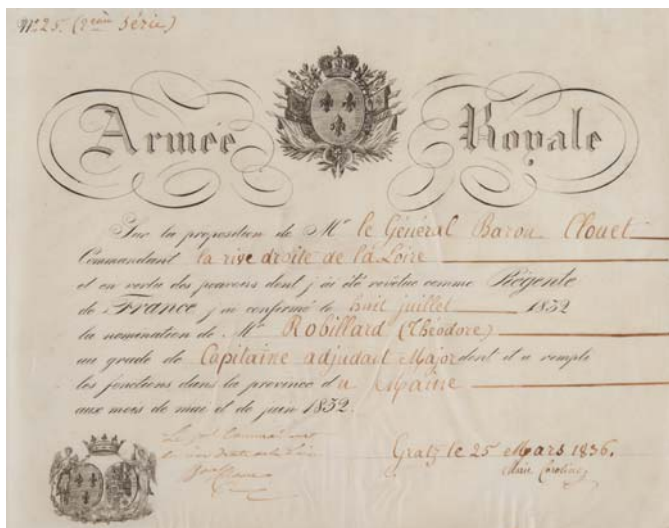 N° 25. (2eme Série)
Armée Royale
Sur la proposition de Mr le Général Baron Clouet
Commandant la rive droite de la Loire
et en vertu des pouvoirs dont j'ai été revêtue comme Régente
de France j'ai confirmé le huit juillet 1832
la nomination de Mr Robillard (Théodore)
au grade de Capitaine adjudant Major dont il a rempli
les fonctions dans la province du Maine
aux mois de mai et de juin 1832.
Gratz le 25 Mars 1836.
Marie Caroline